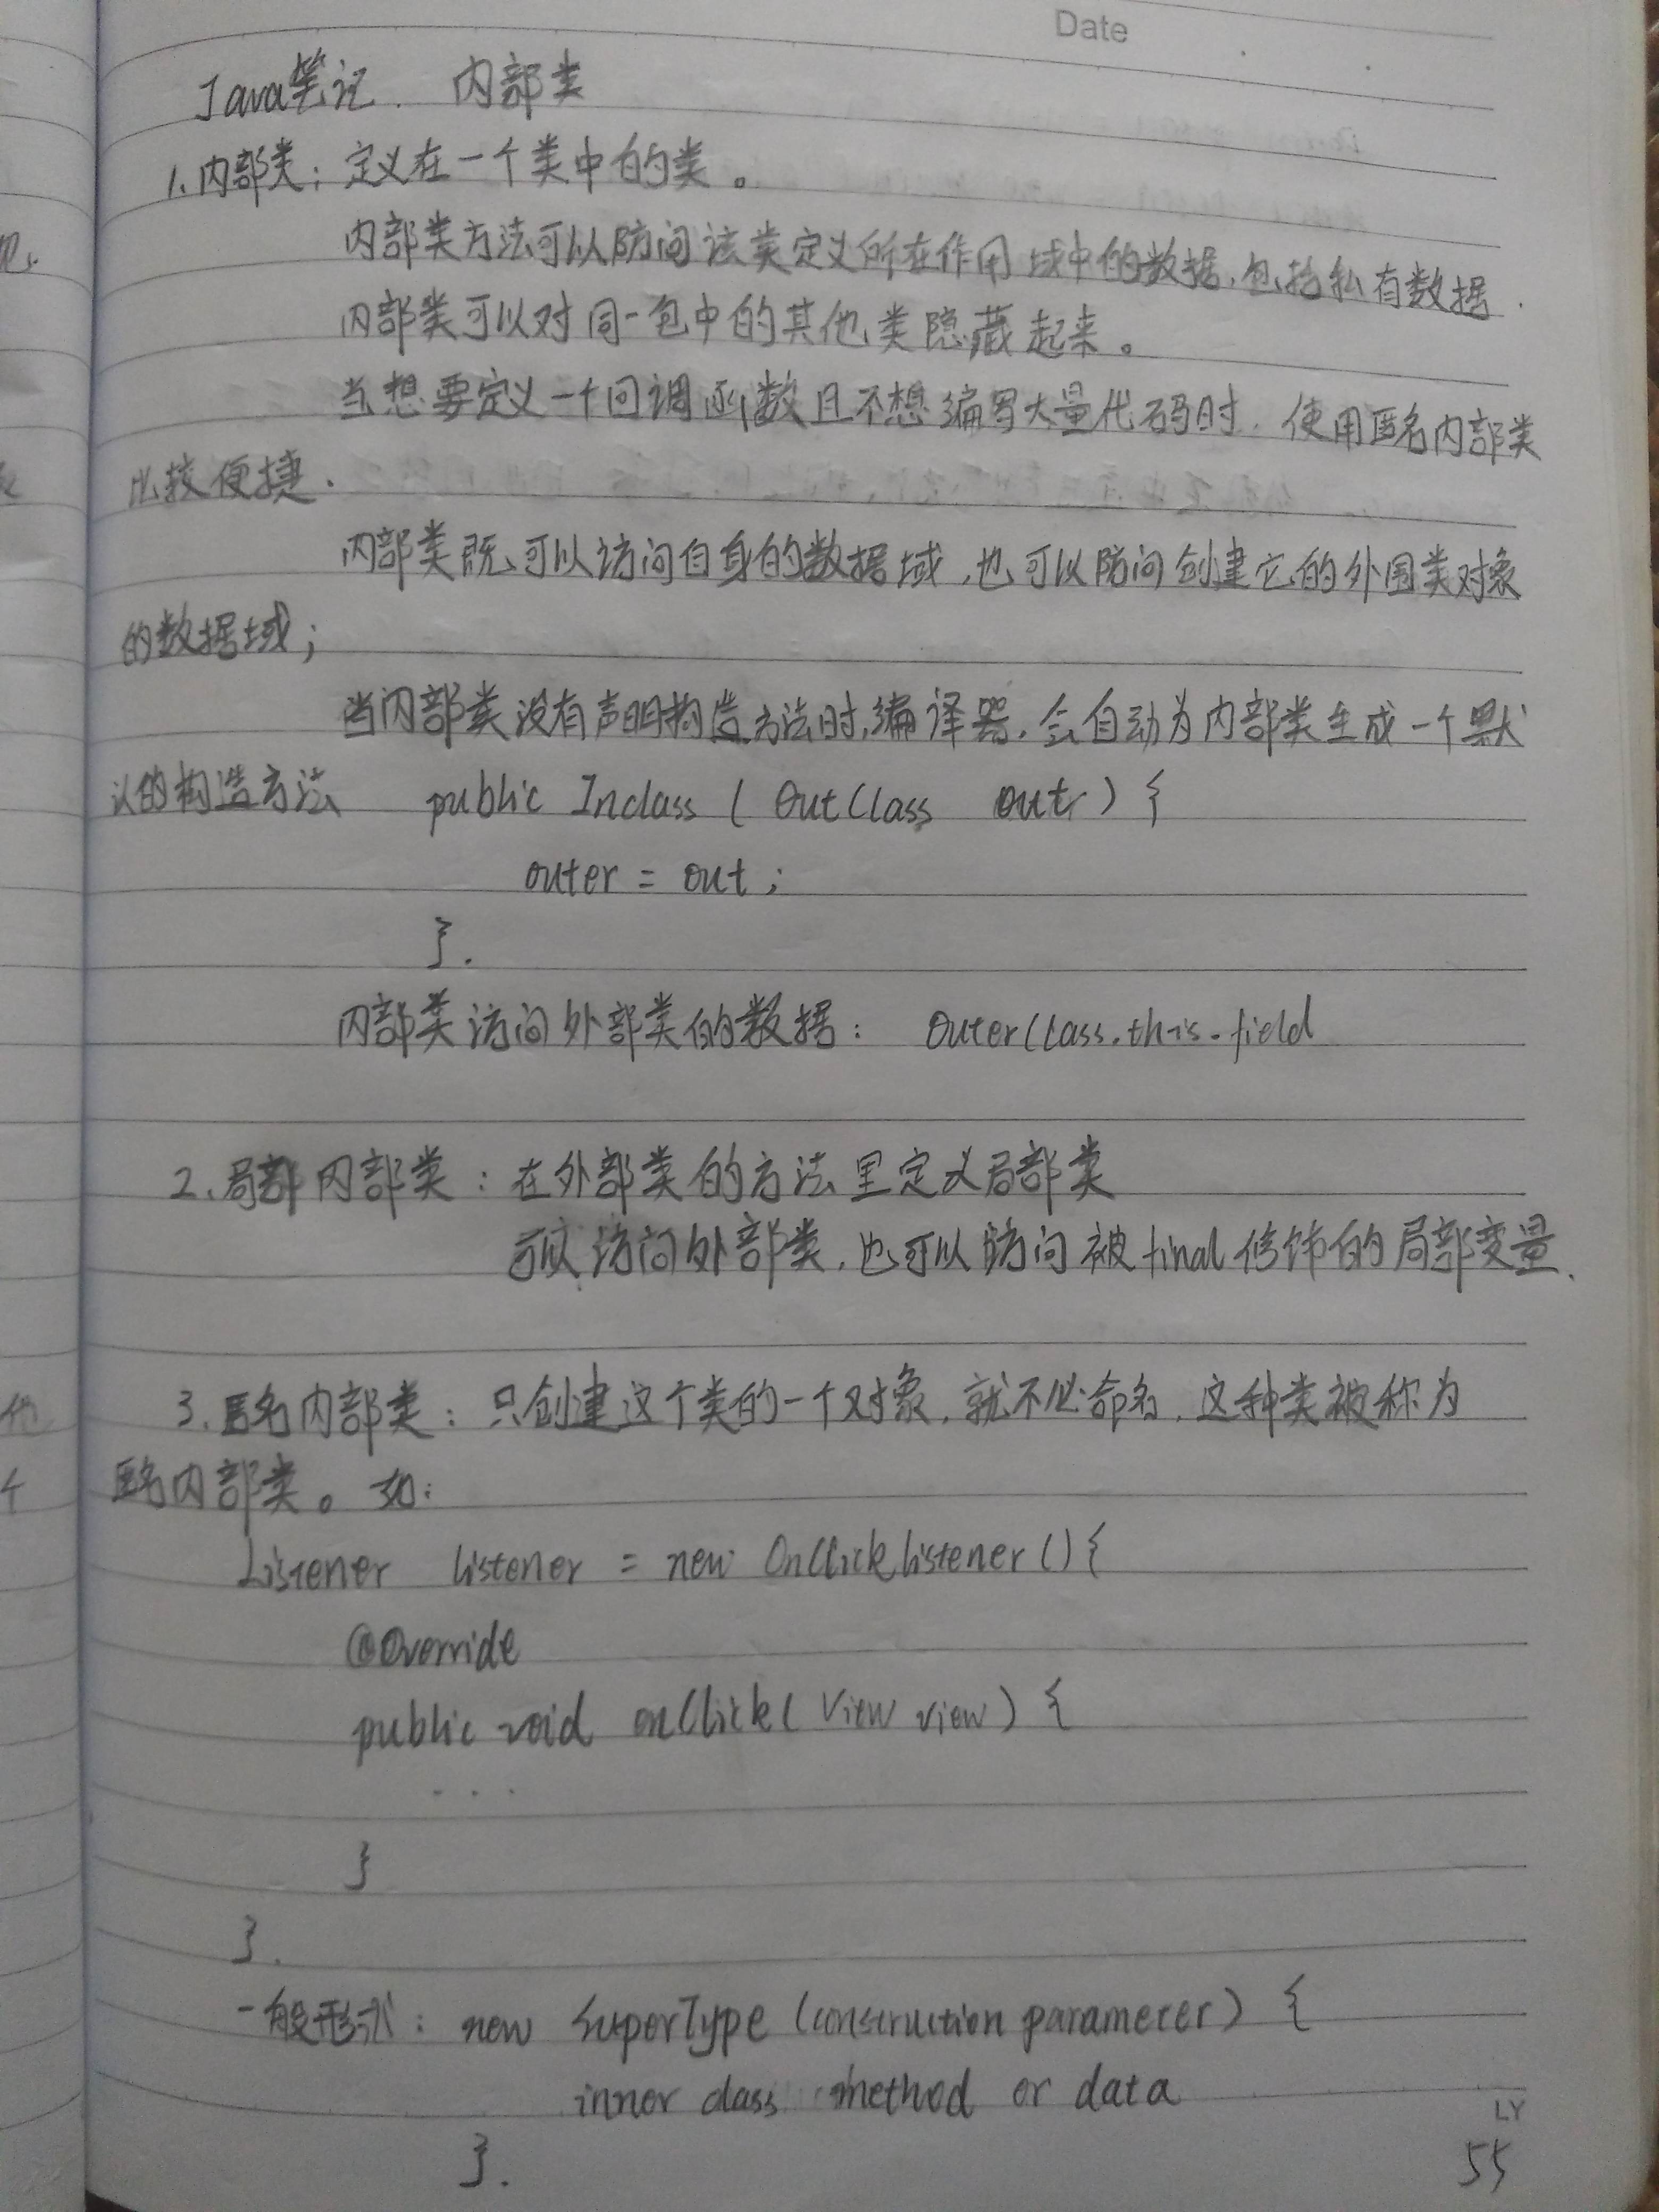 Date
Java笔记. 内部类
1.内部类：定义在一个类中的类。
内部类方法可以访问该类定义所在作用域中的数据,包括私有数据.
内部类可以对同一包中的其他类隐藏起来。
当想要定义一个回调函数且不想编写大量代码时.使用匿名内部类
比较便捷.
内部类既可以访问自身的数据域,也可以访问创建它的外围类对象
的数据域;
当内部类没有声明构造方法时,编译器.会自动为内部类生成一个默
认的构造方法 public Inclass ( OutClass out ) {
outer = out ;
}.
内部类访问外部类的数据: OuterClass.this.field
2.局部内部类: 在外部类的方法里定义局部类
可以访问外部类,也可以访问被final修饰的局部变量.
3.匿名内部类: 只创建这个类的一个对象,就不必命名,这种类被称为
匿名内部类。如:
Listener listener = new OnClicklistener(){
@Override
public void onClick( View view) {
...
}
}.
一般形式: new SuperType (construction parameter) {
inner class method or data
}.
LY
55